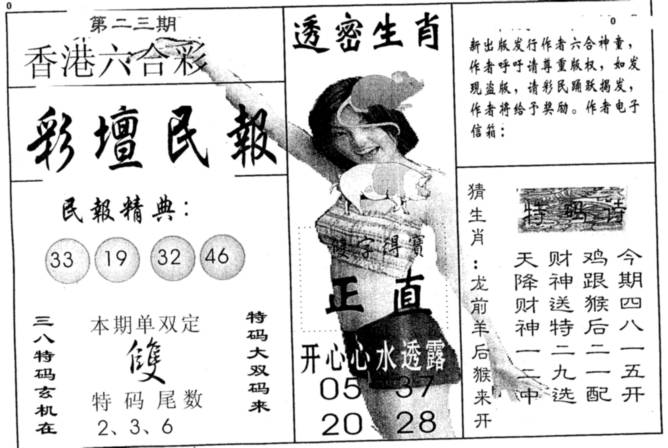 第二三期
香港六合彩
彩壇民報
民報精典：
33 19 32 46
三八特码玄机在
本期单双定
雙
特码尾数
2、3、6
特码大双码来
透密生肖
雙字得寶
正直
开心心水透露
05 37
20 28
新出版发行作者六合神童，
作者呼吁请尊重版权，如发
现盗版，请彩民踊跃揭发，
作者将给予奖励。作者电子
信箱：
猜生肖：龙前羊后猴来开
特码诗
今期四八一五开
鸡跟猴后二一配
财神送特二九选
天降财神一二中